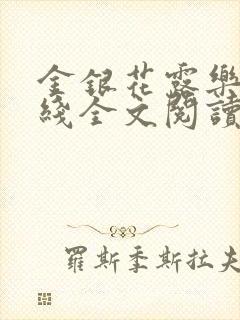 金銀花露樂
綫全文閱讀
羅斯季斯拉夫